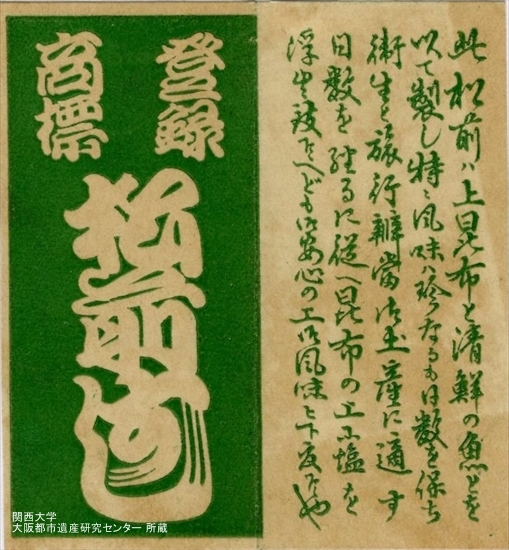 此松前ハ上昆布と清鮮の魚とを
以て製し特ニ風味ハ珍なるも日数を保ち
衛生と旅行辨當御土産に適す
日数を経るに従へ昆布の上ニ塩を
浮生致候へども御安心の上御風味被下度候也
登録
商標
松前すし
関西大学
大阪都市遺産研究センター 所蔵